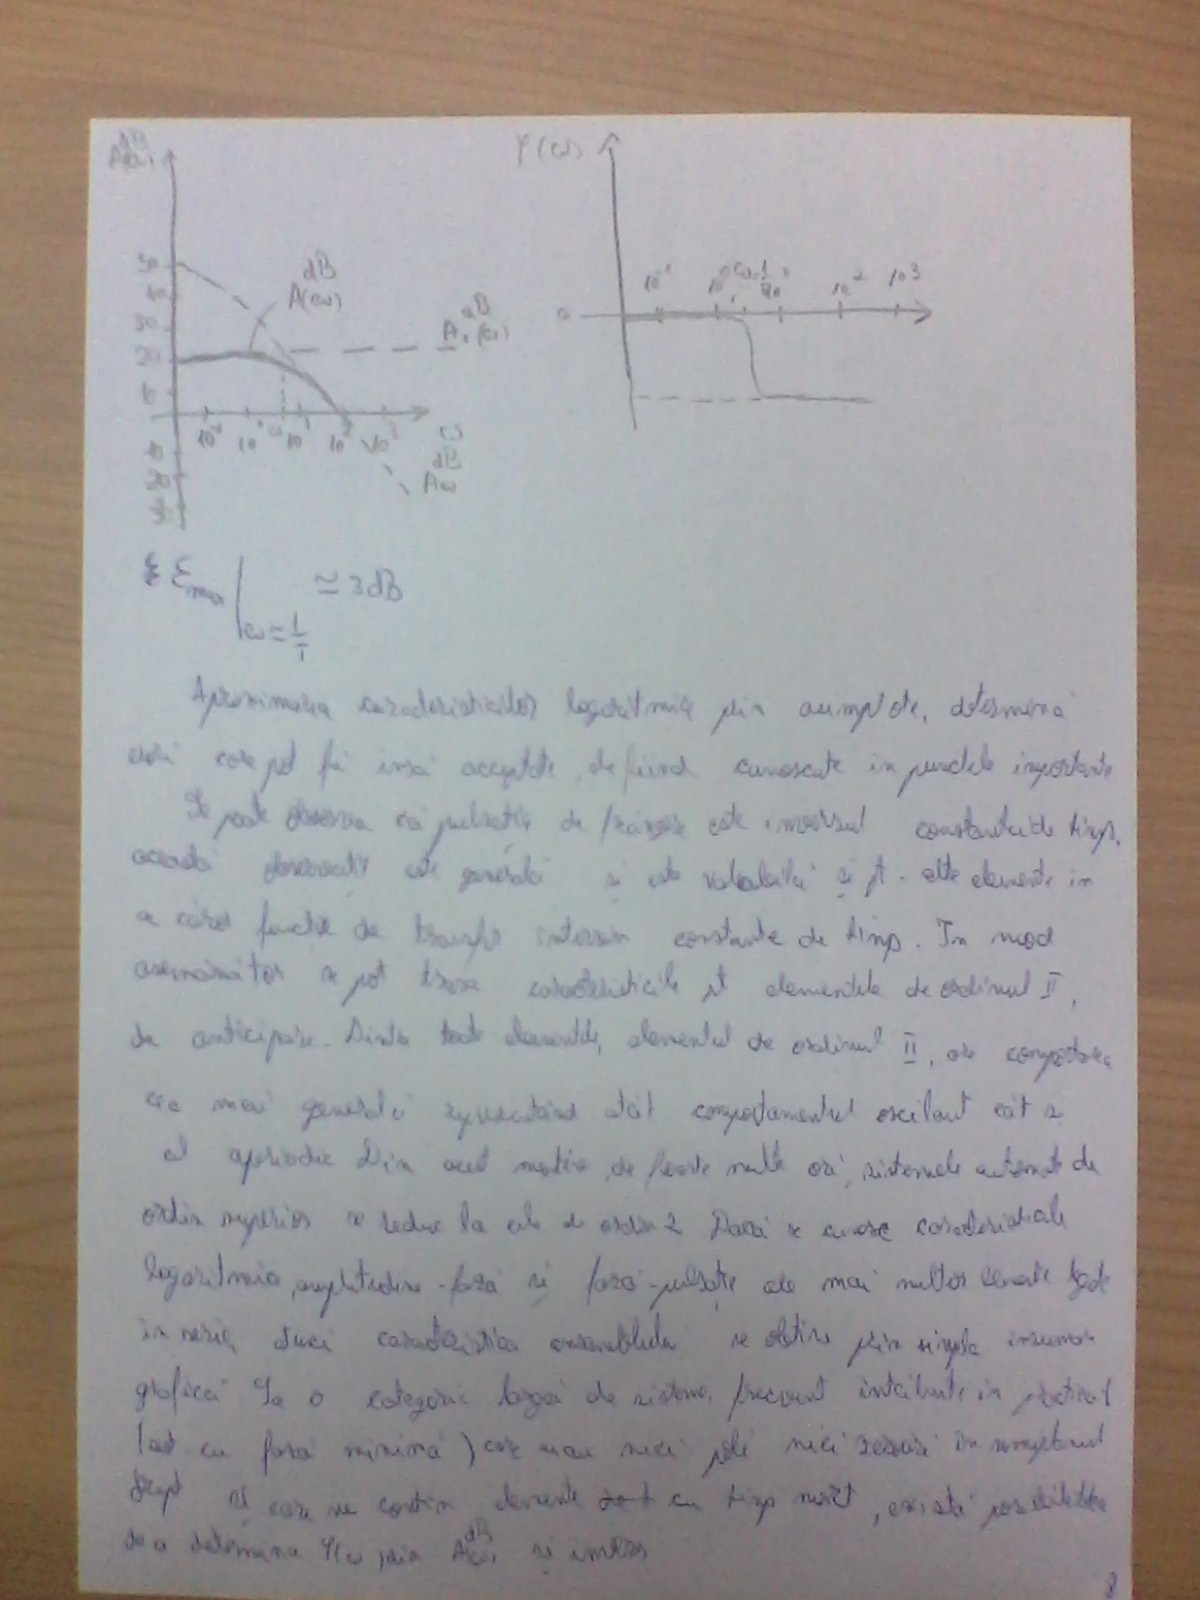 dB
A(ω)
φ(ω)
50
40
30
20
10
10
20
30
dB
A(ω)
dB
A₁(ω)
10⁻¹ 10⁰ ω 10¹ 10² 10³
ω
dB
A(ω)
0
10⁻¹ 10⁰ ω=1/T 10¹ 10² 10³
ε_max | ω=1/T ≃ 3dB
Aproximarea caracteristicilor logaritmice prin asimptote, determină
erori care pot fi însă acceptate, de fiind cunoscute in punctele importante
Se poate observa că pulsația de frângere este inversul constantei de timp.
această observație este generală și este valabilă și pt. alte elemente in
a căror funcție de transfer intervin constante de timp. In mod
asemănător se pot trasa caracteristicile pt elementele de ordinul II,
de anticipare. Dintre toate elementele, elementul de ordinul II, are comportarea
cea mai generală reprezentând atât comportamentul oscilant cât și
el aperiodic Din acest motiv, de foarte multe ori, sistemele automate de
ordin superior se reduc la cele de ordin 2 Dacă se cunosc caracteristicile
logaritmice, amplitudine-fază și fază-pulsație ale mai multor elemente legate
in serie, atunci caracteristica ansamblului se obține prin simpla insumare
grafică La o categorie largă de sisteme, frecvent intâlnite in practică
(cu fază minimă) care nu au nici poli nici zerouri în semiplanul
drept și care nu conțin elemente cu timp mort, există posibilitatea
de a determina φ(ω) din A(ω) dB și invers
8